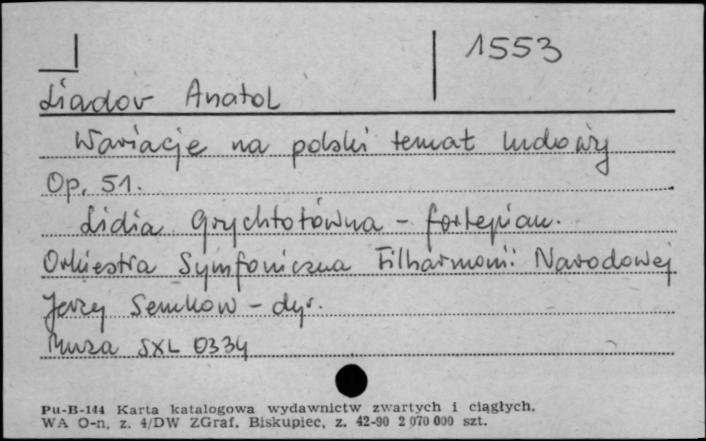 1553
Liadov Anatol
Wariacje na polski temat ludowy
Op. 51.
Lidia Grychtołówna - fortepian.
Orkiestra Symfoniczna Filharmonii Narodowej
Jerzy Semkow - dyr.
Muza SXL 0334
Pu-B-144 Karta katalogowa wydawnictw zwartych i ciągłych.
WA O-n, z. 4/DW ZGraf. Biskupiec, z. 42-90 2 070 000 szt.